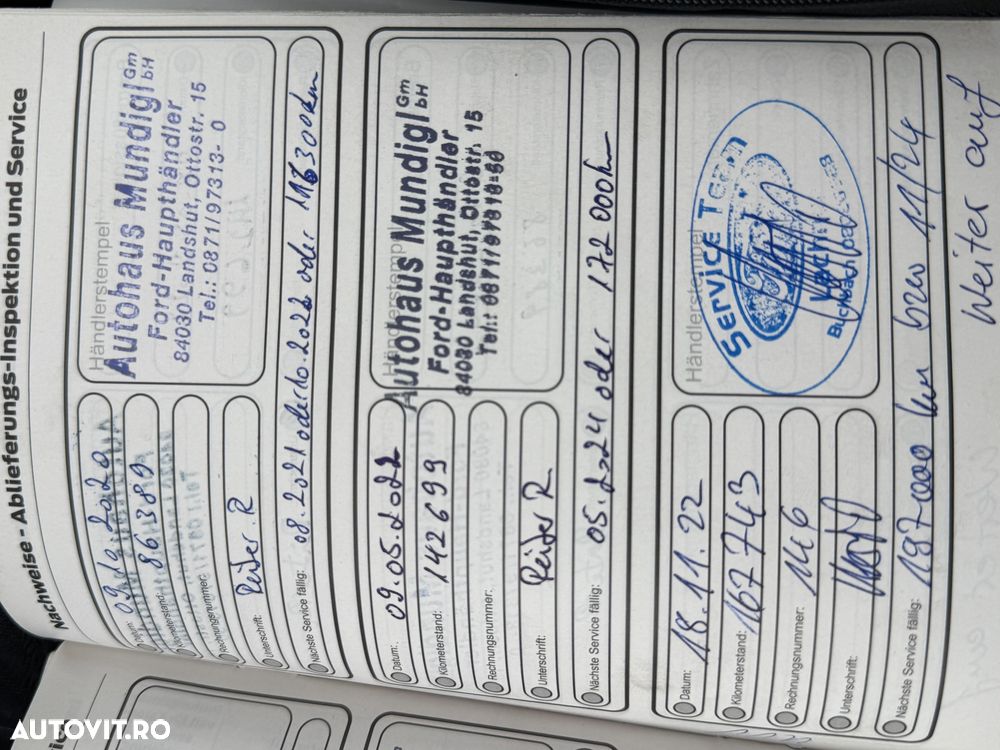 Nachweise - Ablieferungs-Inspektion und Service
Datum: 09.10.2020
Kilometerstand: 86389
Rechnungsnummer:
Unterschrift: Reiter R
Händlerstempel
Autohaus Mundigl Gm bH
Ford-Haupthändler
84030 Landshut, Ottostr. 15
Tel.: 0871/97313- 0
Nächste Service fällig: 08.2021 oder 10.2022 oder 116300km
Datum: 09.05.2022
Kilometerstand: 142699
Rechnungsnummer:
Unterschrift: Reiter R
Händlerstempel
Autohaus Mundigl Gm bH
Ford-Haupthändler
84030 Landshut, Ottostr. 15
Tel.:
Nächste Service fällig: 05.2024 oder 172000km
Datum: 18.11.22
Kilometerstand: 167743
Rechnungsnummer: 146
Unterschrift:
Händlerstempel
Service Team
Nächste Service fällig: 197000 km bzw 11/24
Weiter auf
AUTOVIT.RO